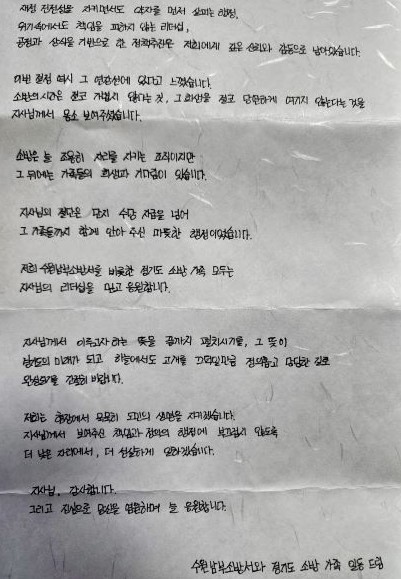 재정 건전성을 지키면서도 약자를 먼저 살피는 행정,
위기속에서도 책임을 피하지 않는 리더십,
공정과 상식을 기반으로 한 정책추진은 저희에게 깊은 신뢰와 감동으로 남아있습니다.
이번 결정 역시 그 연장선에 있다고 느꼈습니다.
소방의시간은 결코 가볍지 않다는 것, 그 희생을 결코 당연하게 여기지 않는다는 것을
지사님께서 몸소 보여주셨습니다.
소방은 늘 조용히 자리를 지키는 조직이지만
그 뒤에는 가족들의 희생과 기다림이 있습니다.
지사님의 결단은 단지 수당 지급을 넘어
그 가족들까지 함께 안아 주신 따뜻한 행정이었습니다.
저희 수원남부소방서를 비롯한 경기도 소방 가족 모두는
지사님의 리더십을 믿고 응원합니다.
지사님께서 이루고자 하는 뜻을 끝까지 펼치시기를, 그 뜻이
미래가 되고 하늘에서도 고개를 끄덕일만큼 정의롭고 당당한 길로
완성되기를 간절히 바랍니다.
저희는 현장에서 묵묵히 도민의 생명을 지키겠습니다.
지사님께서 보여주신 책임과 정의의 행정에 부끄럽지 않도록
더 낮은 자리에서, 더 성실하게 일하겠습니다.
지사님, 감사합니다.
그리고 진심으로 당신을 응원하며 늘 응원합니다.
수원남부소방서와 경기도 소방 가족 일동 드림